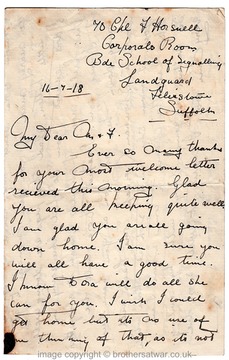 70 Cpl F Horsnell
Corporals Room
Bde School of Signalling
Landguard
Felixstowe
Suffolk
16-7-18
My Dear M & F.
Ever so many thanks
for your most welcome letter
received this morning. Glad
you are all keeping quite well
I am glad you are all going
down home. I am sure you
will all have a good time.
I know Dora will do all she
can for you. I wish I could
get home but its no use of
me thinking of that, as its not
image copyright © brothersatwar.co.uk